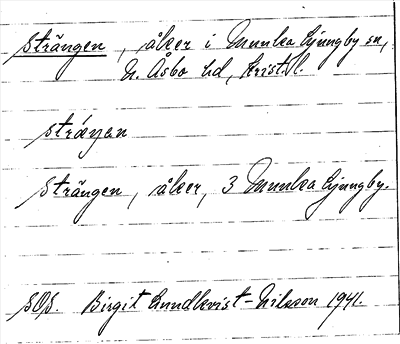 Strängen, åker i Munka Ljungby sn,
N. Åsbo hd, Krist. l.
stræŋan
Strängen, åker, 3 Munka Ljungby.
SOS. Birgit Lundkvist-Nilsson 1941.